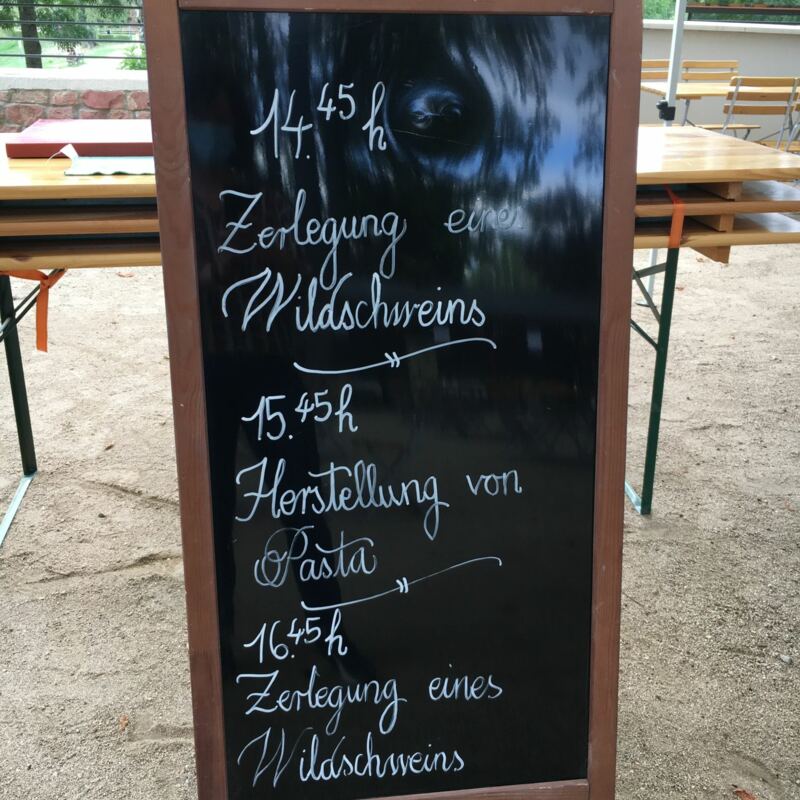 14.45 h
Zerlegung eines
Wildschweins
15.45 h
Herstellung von
Pasta
16.45 h
Zerlegung eines
Wildschweins